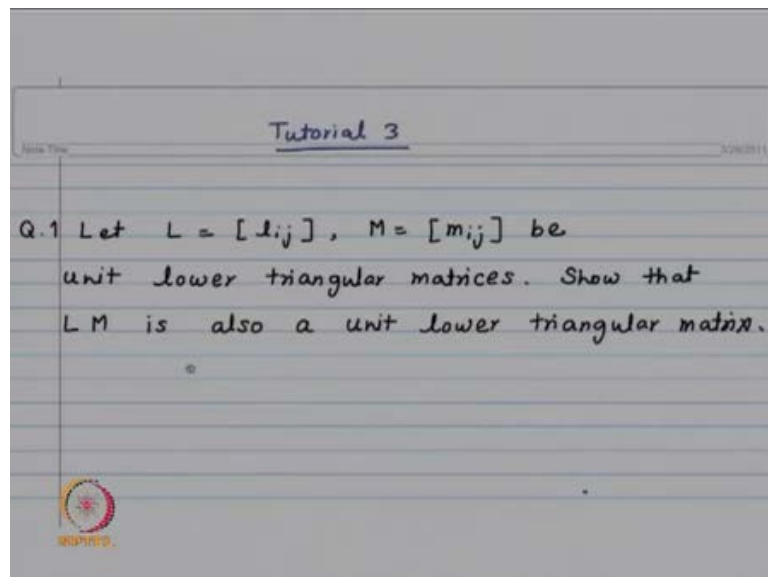 Tutorial 3
Note Title
Q.1 Let L = [lij], M = [mij] be
unit lower triangular matrices. Show that
LM is also a unit lower triangular matrix.